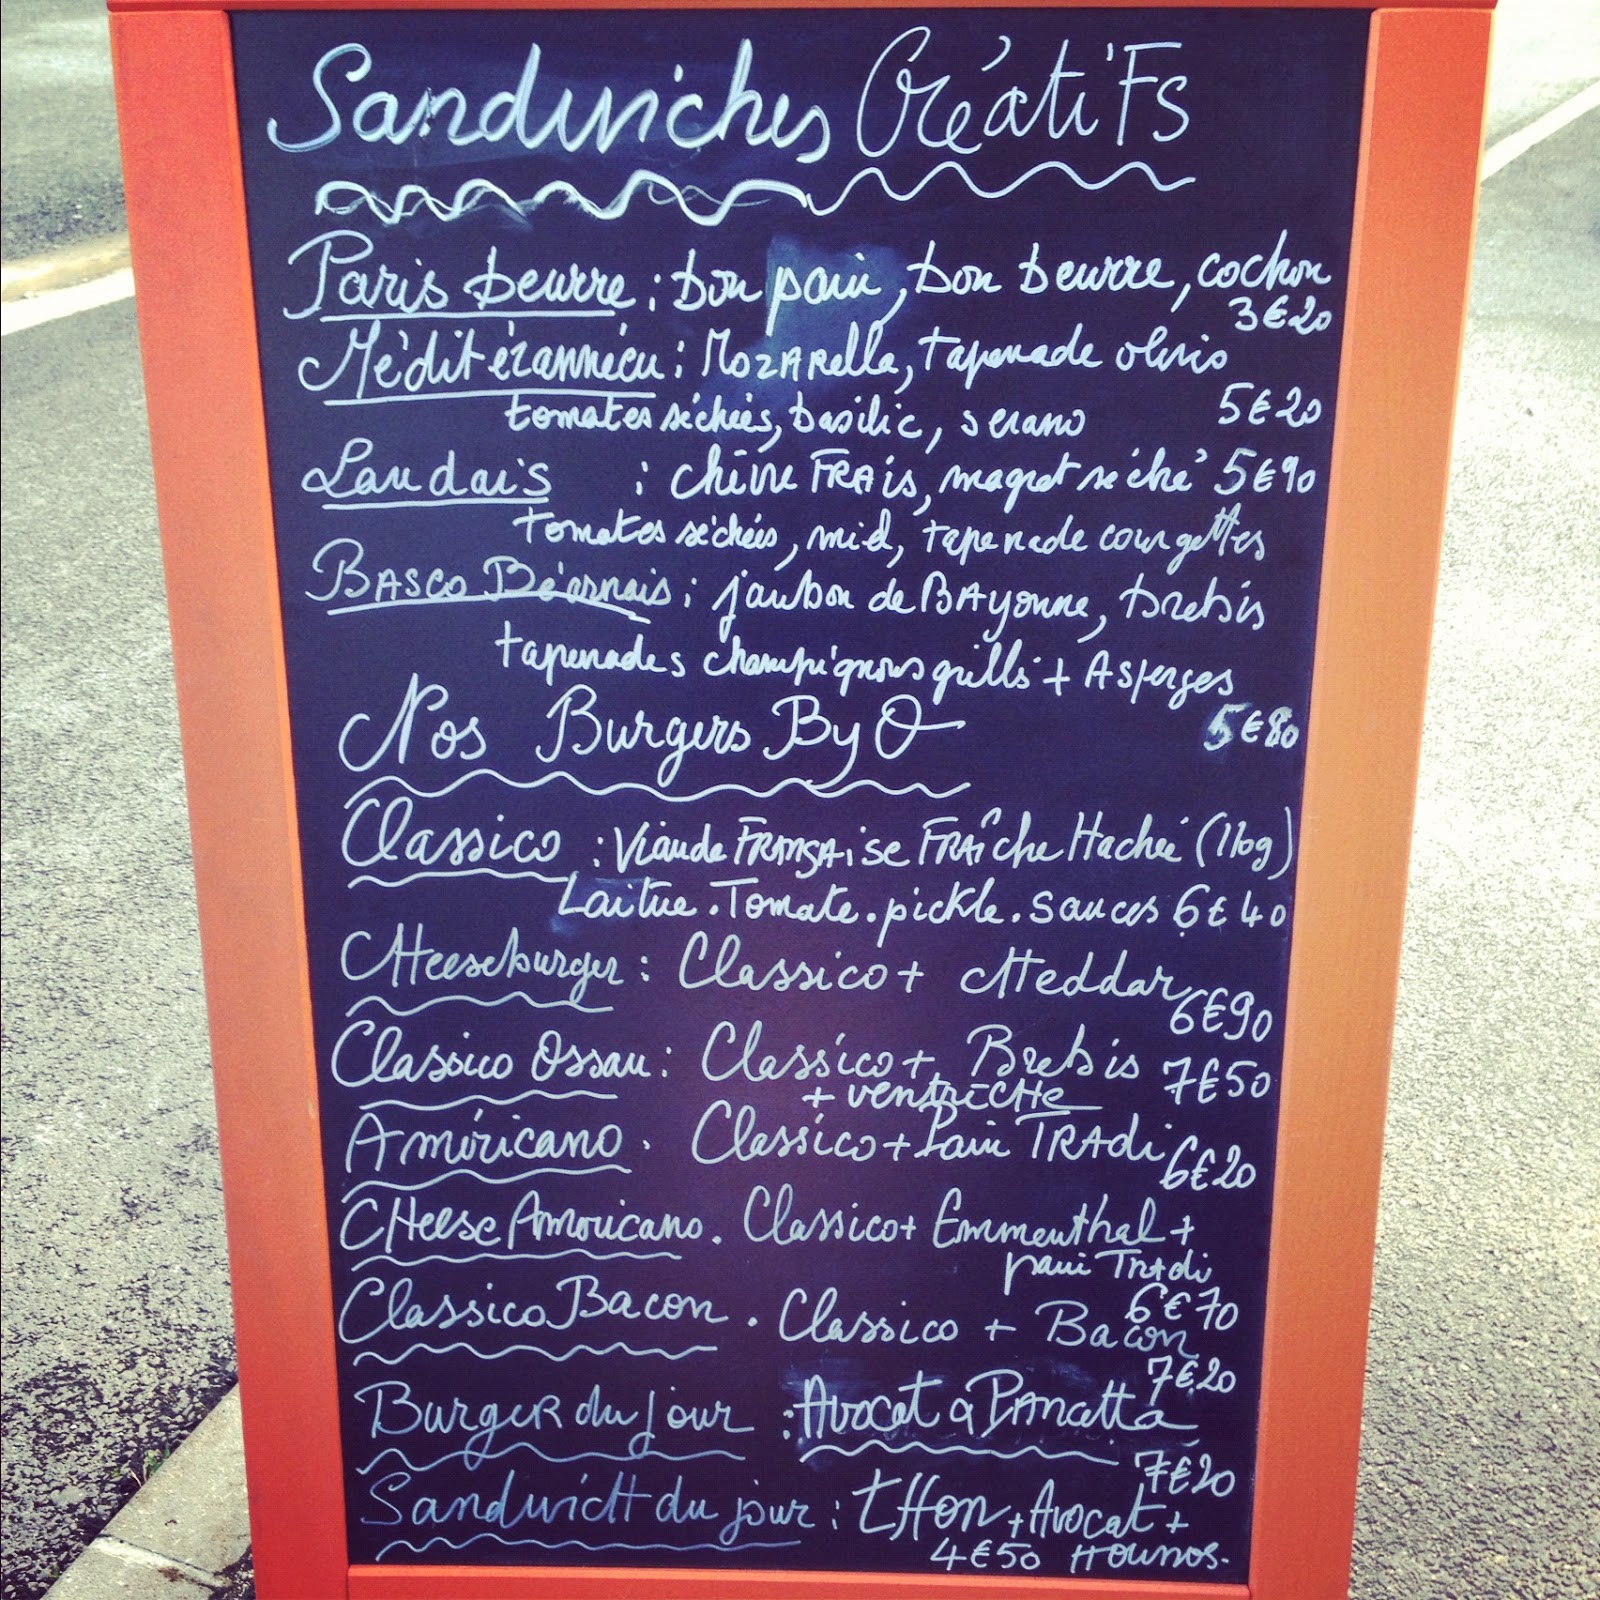 Sandwiches CréatiFs
Paris beurre : bon pain, bon beurre, cochon
3€20
Méditérannéen : MozARella, tapenade olives
tomates séchées, basilic, serano 5€20
Landais : chèvre FRAis, magret séché 5€90
tomates séchées, miel, tapenade courgettes
BASCO Béarnais : jambon de BAyonne, brebis
tapenades champignons grillés + Asperges
5€80
Nos Burgers By O
Classico : Viande FRANçAise FRAîche Hachée (110g)
Laitue . Tomate . pickle . sauces 6€40
CHeeseburger : Classico + cHeddar
6€90
Classico Ossau : Classico + Brebis 7€50
+ ventricHe
Américano . Classico + Pain TRAdi
6€20
CHeese Américano . Classico + Emmenthal +
pain TRAdi
6€70
Classico Bacon . Classico + Bacon
7€20
BurgeR du jour : Avocat & PANcetta
7€20
SandwicH du jour : tHon + Avocat +
4€50 Houmos.